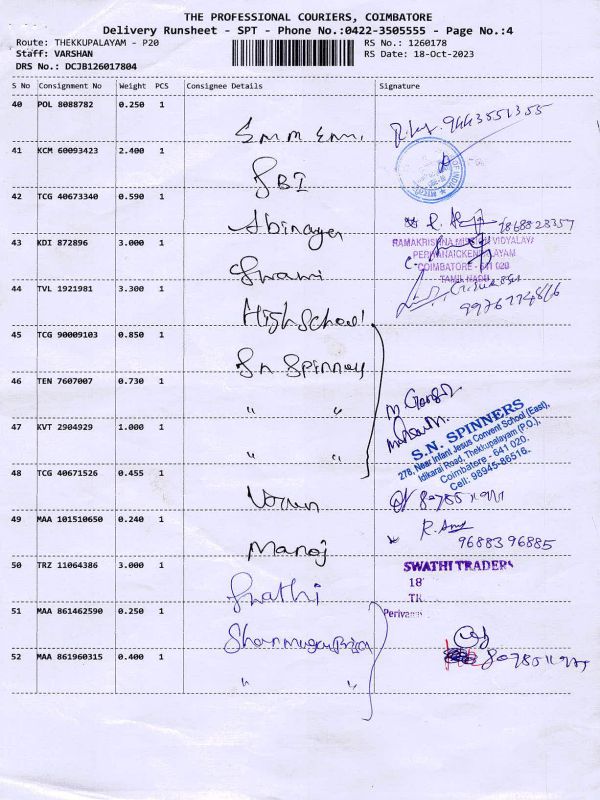 THE PROFESSIONAL COURIERS, COIMBATORE
Delivery Runsheet - SPT - Phone No.:0422-3505555 - Page No.:4
Route: THEKKUPALAYAM - P20 RS No.: 1260178
Staff: VARSHAN RS Date: 18-Oct-2023
DRS No.: DCJB126017804
S No Consignment No Weight PCS Consignee Details Signature
40 POL 8088782 0.250 1
9443551355
41 KCM 60093423 2.400 1
SBI
42 TCG 40673340 0.590 1
Abinaya
43 KDI 872896 3.000 1
RAMAKRISHNA MISSION VIDYALAYA
PERIANAICKENPALAYAM
COIMBATORE - 641 020
TAMIL NADU
Swami
44 TVL 1921981 3.300 1
High School
45 TCG 90009103 0.850 1
S.N Spinney
46 TEN 7607007 0.730 1
" "
47 KVT 2904929 1.000 1
S.N. SPINNERS
278, Near Infant Jesus Convent School (East),
Idikarai Road, Thekkupalayam (P.O.),
Coimbatore - 641 020.
Cell: 98945-86516.
" "
48 TCG 40671526 0.455 1
Varun
49 MAA 101510650 0.240 1
9688396885
Manoj
50 TRZ 11064386 3.000 1
SWATHI TRADERS
18
TK
Swathi
51 MAA 861462590 0.250 1
Periyan
Shanmugapriya
52 MAA 861960315 0.400 1
" "